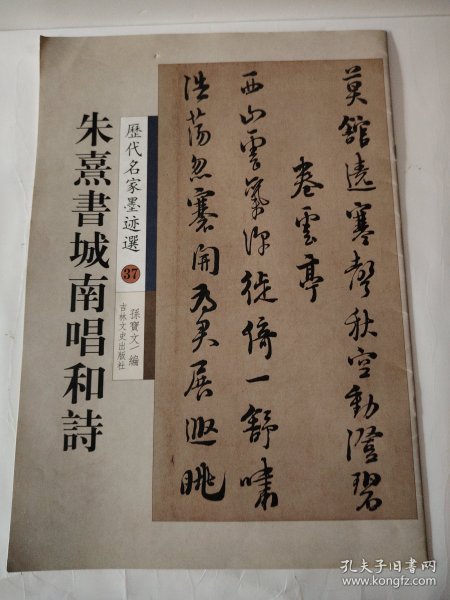 朱熹書城南唱和詩
歷代名家墨迹選
37
孫寶文 編
吉林文史出版社
莫館遶寒聲秋空動澄碧
卷雲亭
西山雲氣深徙倚一舒嘯
浩蕩忽褰開為君展遐眺
孔夫子旧书网
www.kongfz.com